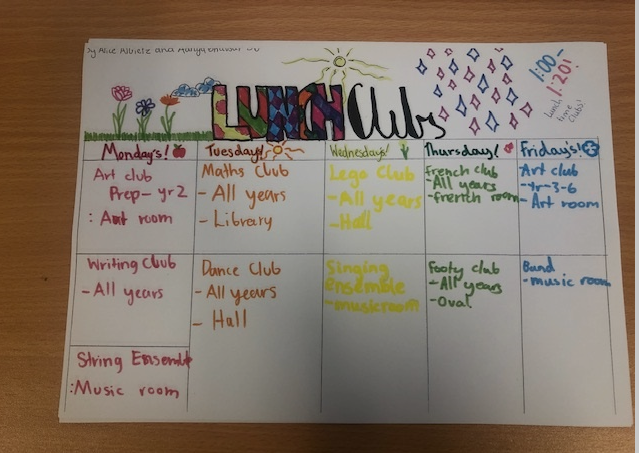 by Alice Albietz and
LUNCH Clubs
1:00-
1:20!
Lunch
time
Clubs!
Monday's!
Art club
Prep-yr2
: Art room
Writing Club
- All years
String Ensemble
: Music room
Tuesday!
Maths Club
- All years
- Library
Dance Club
- All yeears
- Hall
Wednesday's!
Lego Club
- All years
- Hall
Singing
ensemble
- musicroom
Thursday!
french club
- All years
- french room
footy club
- All years
- Oval
Fridays!
Art club
- yr-3-6
- Art room
Band
- music room